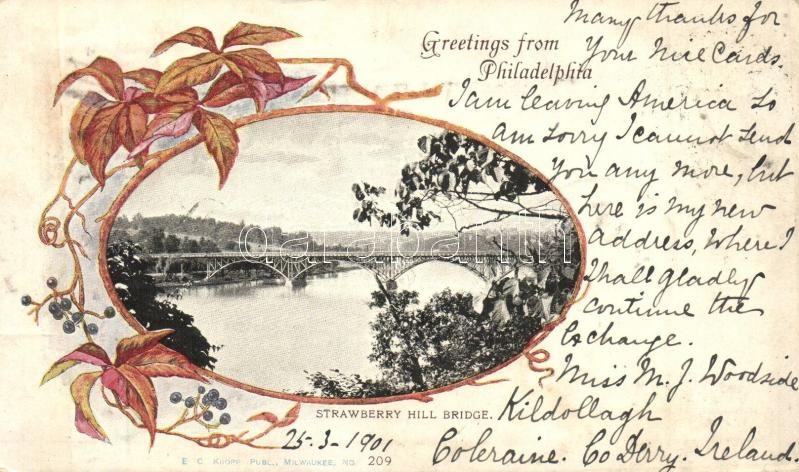 Many thanks for
Greetings from
Philadelphia
Your Nice Cards.
I am leaving America so
am sorry I cannot send
you any more, but
here is my new
address, where I
shall gladly
continue the
Exchange.
Miss M. J. Woodside
STRAWBERRY HILL BRIDGE.
Kildollagh
25-3-1901
Coleraine. Co Derry. Ireland.
E. C. KROPP PUBL., MILWAUKEE, NO. 209
darabanth